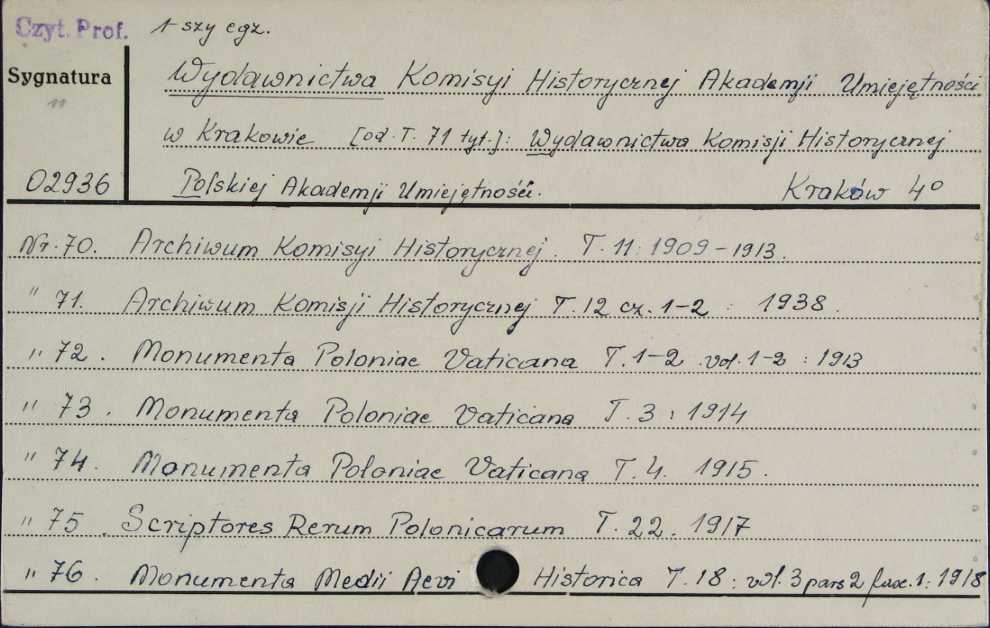 Czyt. Prof. 1-szy egz.
Sygnatura
"
02936
Wydawnictwa Komisyi Historycznej Akademji Umiejętności
w Krakowie [od T. 71 tyt.]: Wydawnictwa Komisji Historycznej
Polskiej Akademji Umiejętności. Kraków 4°
Nr. 70. Archiwum Komisyi Historycznej. T. 11: 1909-1913.
" 71. Archiwum Komisji Historycznej T. 12 cz. 1-2 : 1938.
" 72. Monumenta Poloniae Vaticana T. 1-2 vol. 1-2 : 1913
" 73. Monumenta Poloniae Vaticana T. 3 : 1914
" 74. Monumenta Poloniae Vaticana T. 4. 1915.
" 75. Scriptores Rerum Polonicarum T. 22. 1917
" 76. Monumenta Medii Aevi Historica T. 18 : vol. 3 pars 2 fasc. 1 : 1918